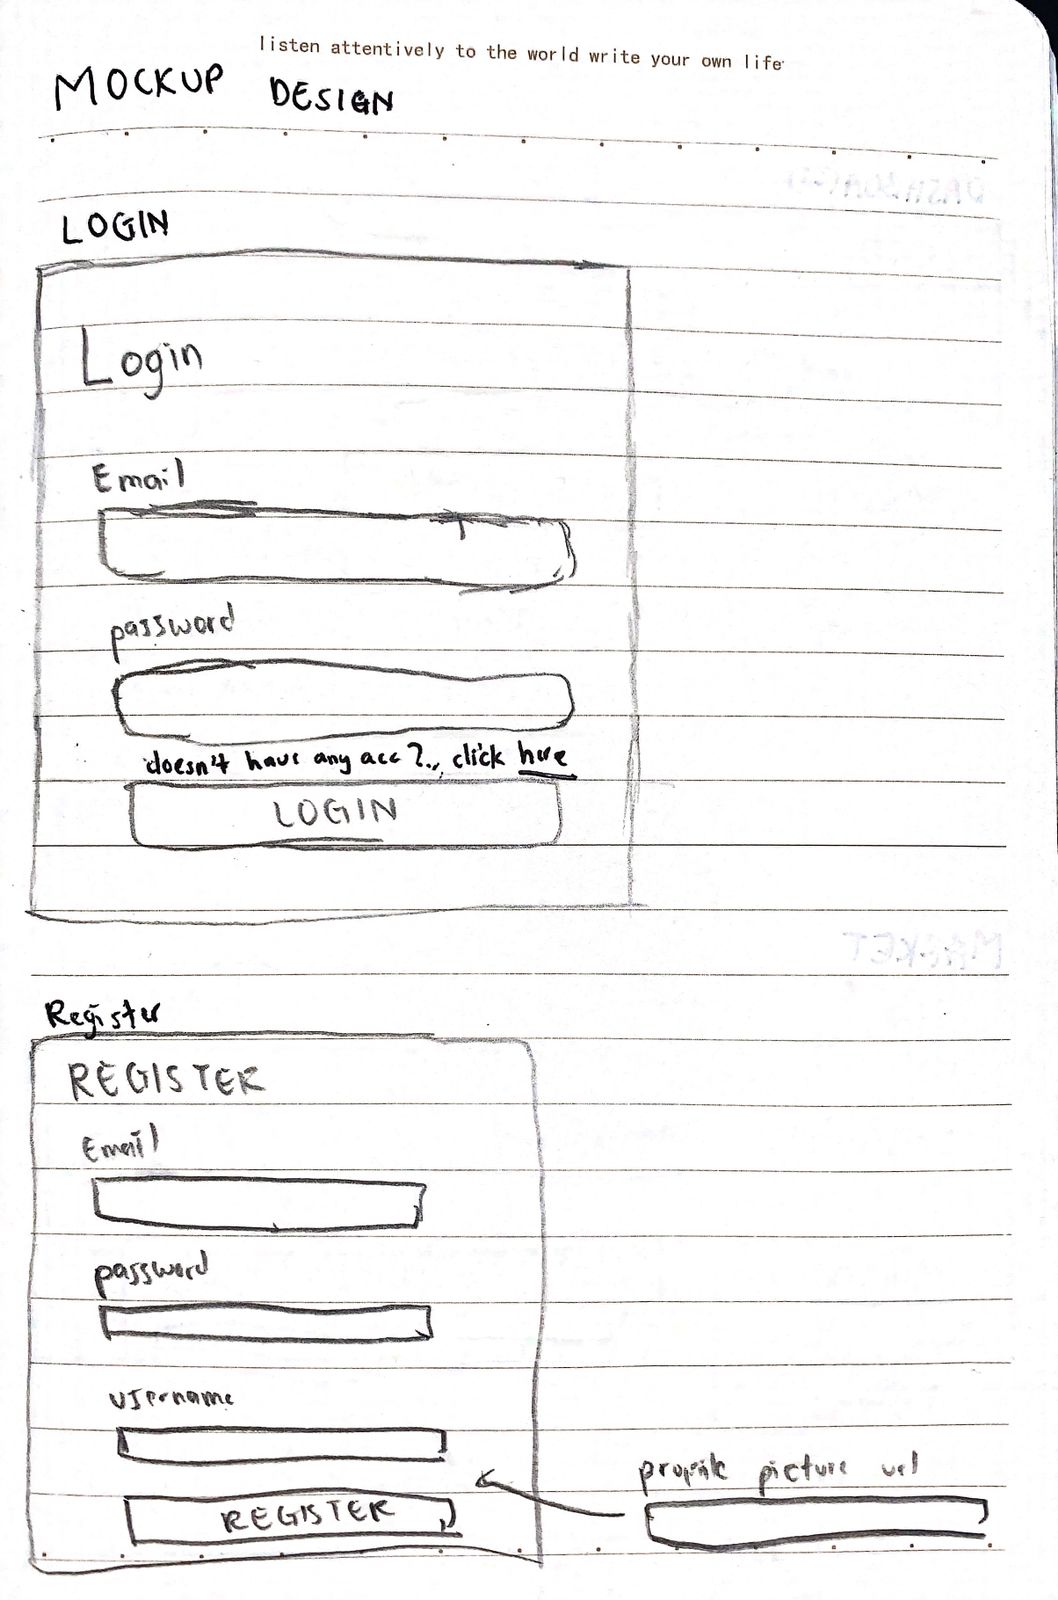 listen attentively to the world write your own life
MOCKUP DESIGN
LOGIN
Login
Email
password
doesn't have any acc?.., click here
LOGIN
Register
REGISTER
Email
password
username
profile picture url
REGISTER